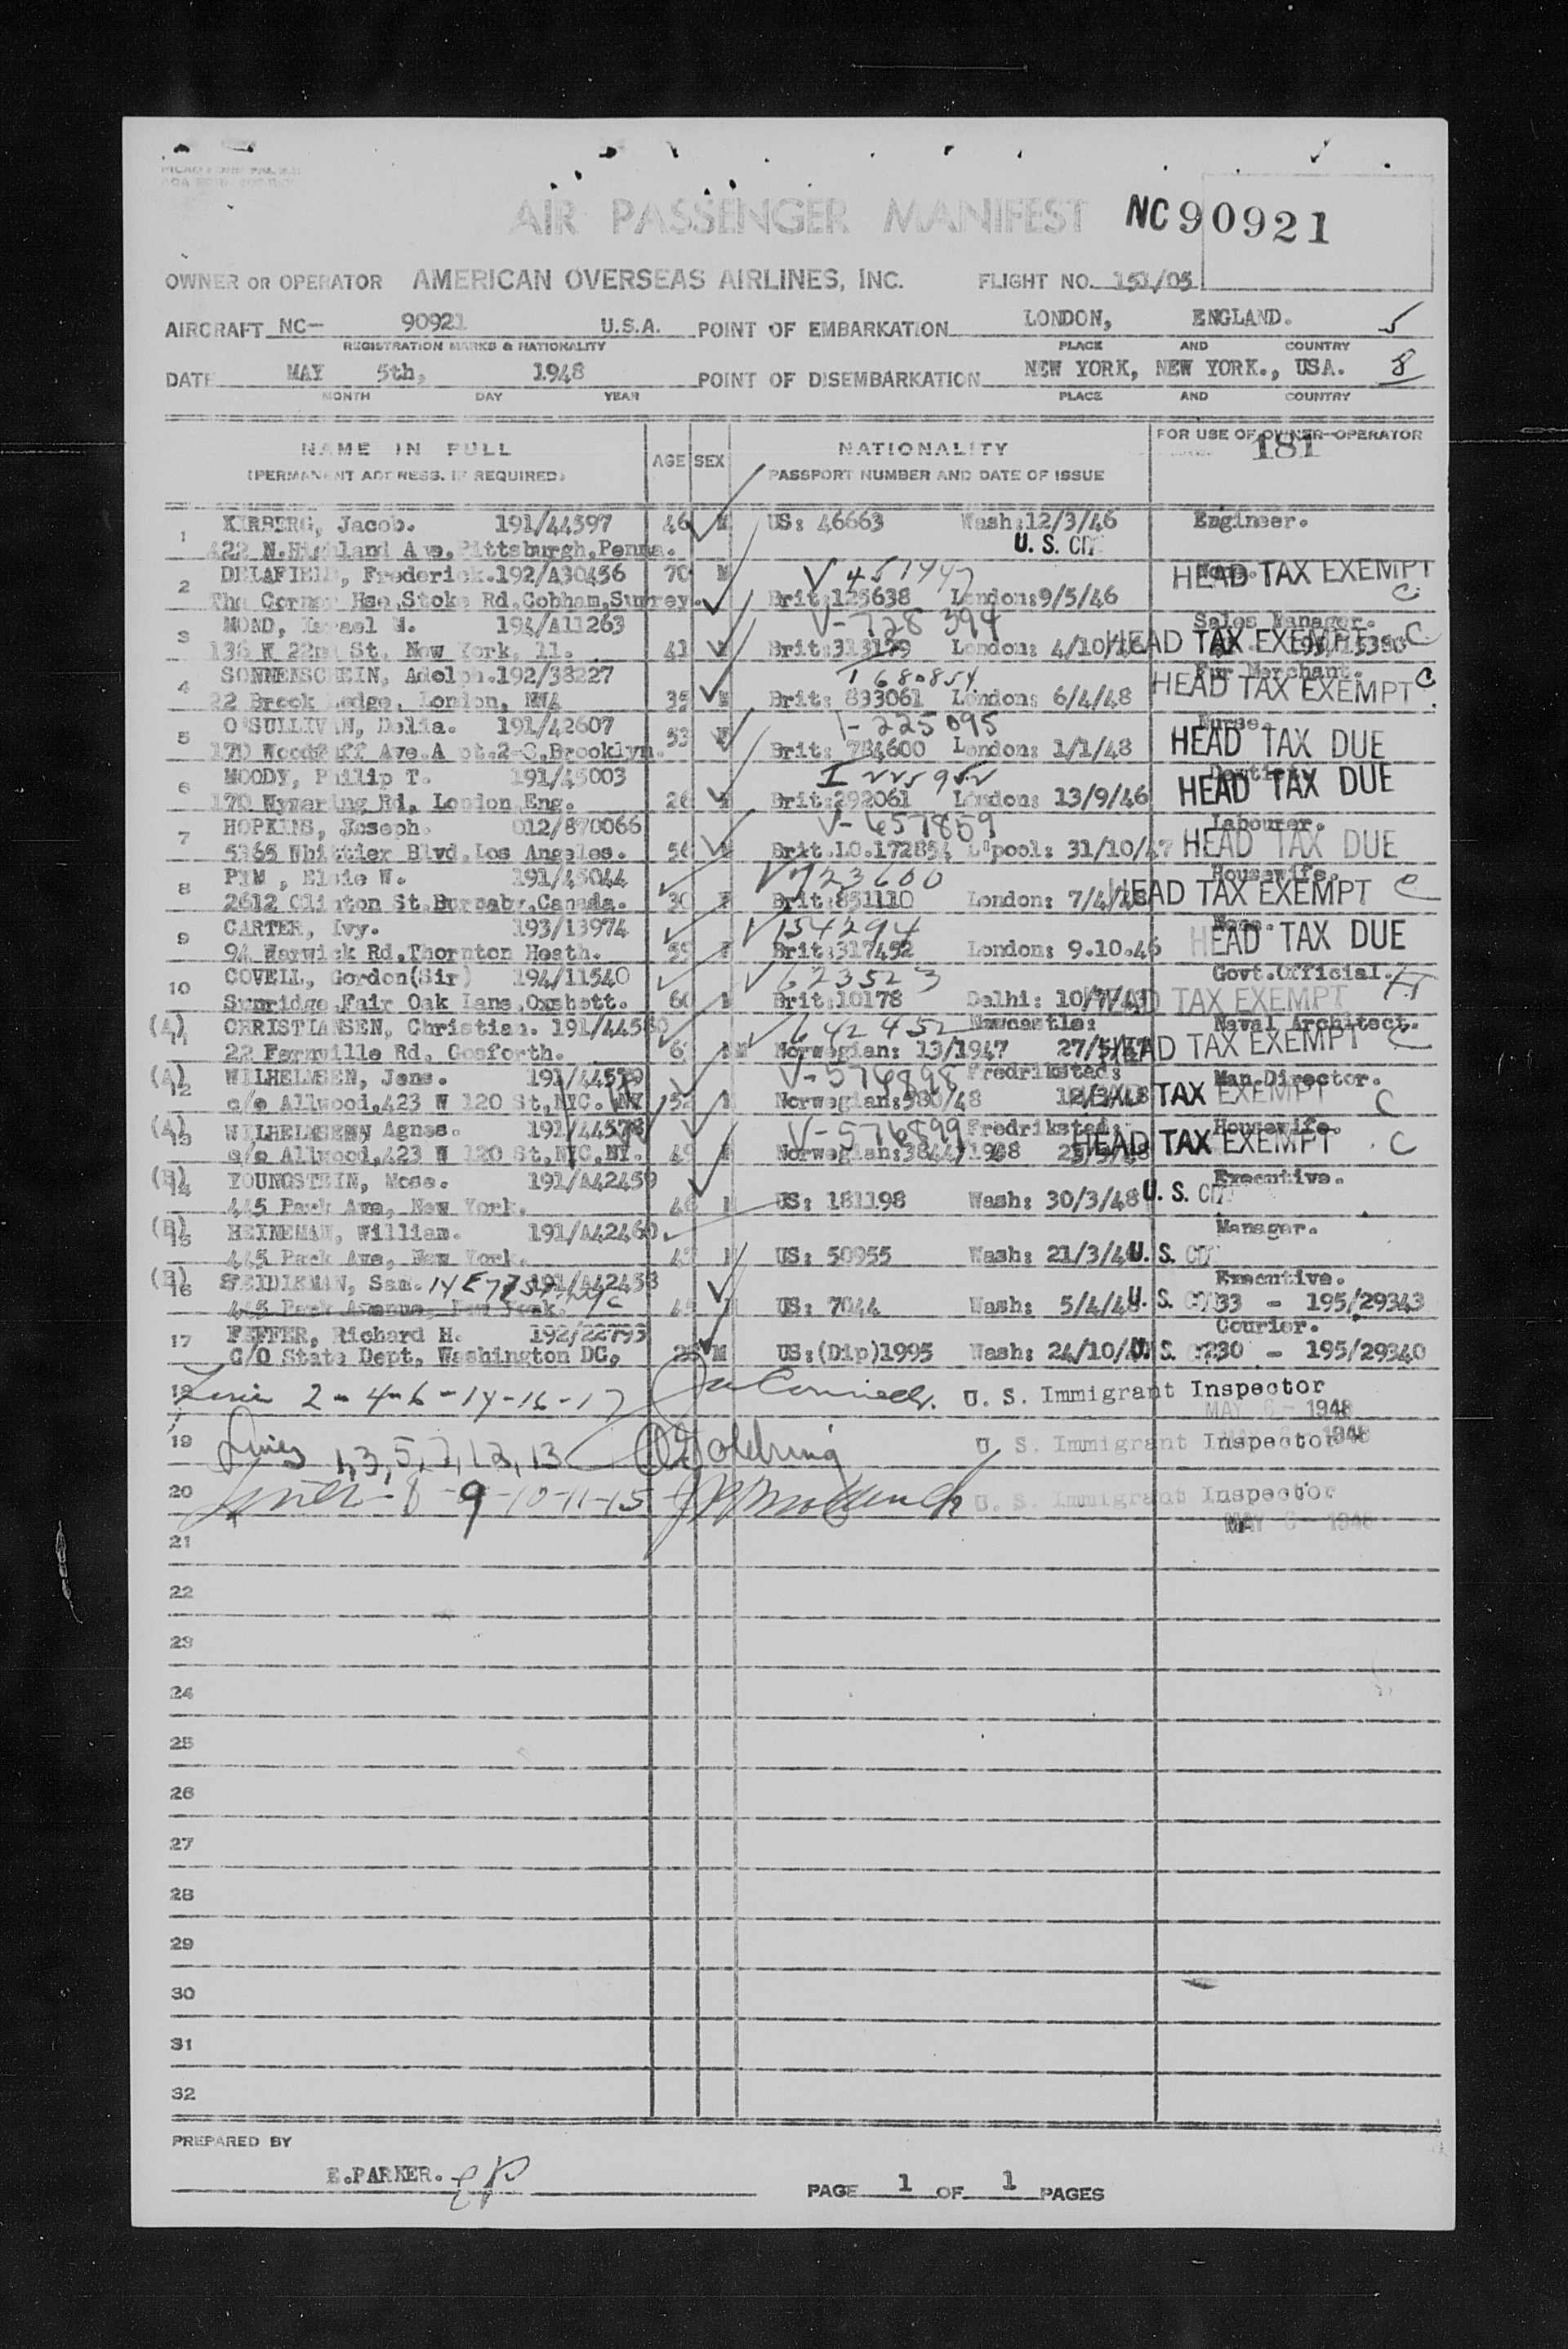 AIR PASSENGER MANIFEST NC90921
OWNER OR OPERATOR AMERICAN OVERSEAS AIRLINES, INC. FLIGHT NO. 151/05
AIRCRAFT NC- 90921 U.S.A. POINT OF EMBARKATION LONDON, ENGLAND. 5
REGISTRATION MARKS & NATIONALITY PLACE AND COUNTRY
DATE MAY 5th, 1948 POINT OF DISEMBARKATION NEW YORK, NEW YORK., USA. 8
MONTH DAY YEAR PLACE AND COUNTRY
NAME IN FULL AGE SEX NATIONALITY FOR USE OF OWNER-OPERATOR
181
(PERMANENT ADDRESS, IF REQUIRED) PASSPORT NUMBER AND DATE OF ISSUE
1 KIRBERG, Jacob. 191/44597 46 M US: 46663 Wash:12/3/46 Engineer.
422 N.Highland Ave,Pittsburgh,Penna. U. S. CIT
2 DELAFIELD, Frederick.192/A30456 70 M V 451447 HEAD TAX EXEMPT
The Corner Hse,Stoke Rd,Cobham,Surrey. Brit:125638 London:9/5/46 C
3 MOND, Israel M. 194/A11263 V-728394 Sales Manager.
136 W 22nd St, New York, 11. 41 M Brit:313179 London: 4/10/46 HEAD TAX EXEMPT C
4 SONNENSCHEIN, Adolph.192/38227 I 680854 Fur Merchant.
22 Brook Lodge, London, NW4 35 M Brit: 893061 London: 6/4/48 HEAD TAX EXEMPT C
5 O'SULLIVAN, Delia. 191/42607 53 F V-225095 Nurse.
170 Woodruff Ave.Apt.2-C,Brooklyn. Brit: 784600 London: 1/1/48 HEAD TAX DUE
6 MOODY, Philip T. 191/45003 I 225952 Dentist.
170 Wymering Rd, London Eng. 26 M Brit:292061 London: 13/9/46 HEAD TAX DUE
7 HOPKINS, Joseph. 012/870066 V-657859 Labourer.
5365 Whittier Blvd,Los Angeles. 56 M Brit.LO.172854 L'pool: 31/10/47 HEAD TAX DUE
8 PYM, Elsie W. 191/45044 V723600 Housewife.
2612 Clinton St,Burnaby,Canada. 30 F Brit:851110 London: 7/4/48 HEAD TAX EXEMPT C
9 CARTER, Ivy. 193/13974 V154294 None.
94 Warwick Rd,Thornton Heath. 59 F Brit:317452 London: 9.10.46 HEAD TAX DUE
10 COVELL, Gordon(Sir) 194/11540 V623523 Govt.Official.
Sunridge,Fair Oak Lane,Oxshott. 60 M Brit:10178 Delhi: 10/7/43 HEAD TAX EXEMPT
(A) 11 CHRISTIANSEN, Christian. 191/44580 V642452 Newcastle: Naval Architect.
22 Fernville Rd, Gosforth. M Norwegian: 13/1947 27/5/47 HEAD TAX EXEMPT C
(A) 12 WILHELMSEN, Jens. 191/44579 V-576898 Fredrikstad: Man.Director.
c/o Allwood,423 W 120 St,NYC. NY 52 M Norwegian:380/48 HEAD TAX EXEMPT C
(A) 13 WILHELMSEN, Agnes. 191/44578 V-576899 Fredrikstad: Housewife.
c/o Allwood,423 W 120 St,NYC,NY. 49 F HEAD TAX EXEMPT C
(B) 14 YOUNGSTEIN, Mose. 191/A42459 Executive.
445 Park Ave, New York. M US: 181198 Wash: 30/3/48 U. S. CIT
(B) 15 HEINEMAN, William. 191/A42460 Manager.
445 Park Ave, New York. M US: 50955 Wash: 21/3/4 U. S. CIT
(B) 16 SEIDLEMAN, Sam. 191/A42458 Executive.
445 Park Avenue, New York. US: 7044 Wash: 5/4/48 U. S. 33 - 195/29343
17 FEFFER, Richard H. 192/22793 Courier.
C/O State Dept, Washington DC, M US:(Dip)1995 Wash: 24/10/ U. S. 230 - 195/29340
18 Lines 2-4-6-14-16-17 U. S. Immigrant Inspector
MAY 6 - 1948
19 Lines 1,3,5,7,12,13 U. S. Immigrant Inspector 1948
20 Lines-8-9-10-11-15 U. S. Immigrant Inspector
MAY 6 - 1948
21
22
23
24
25
26
27
28
29
30
31
32
PREPARED BY
E.PARKER. EP
PAGE 1 OF 1 PAGES